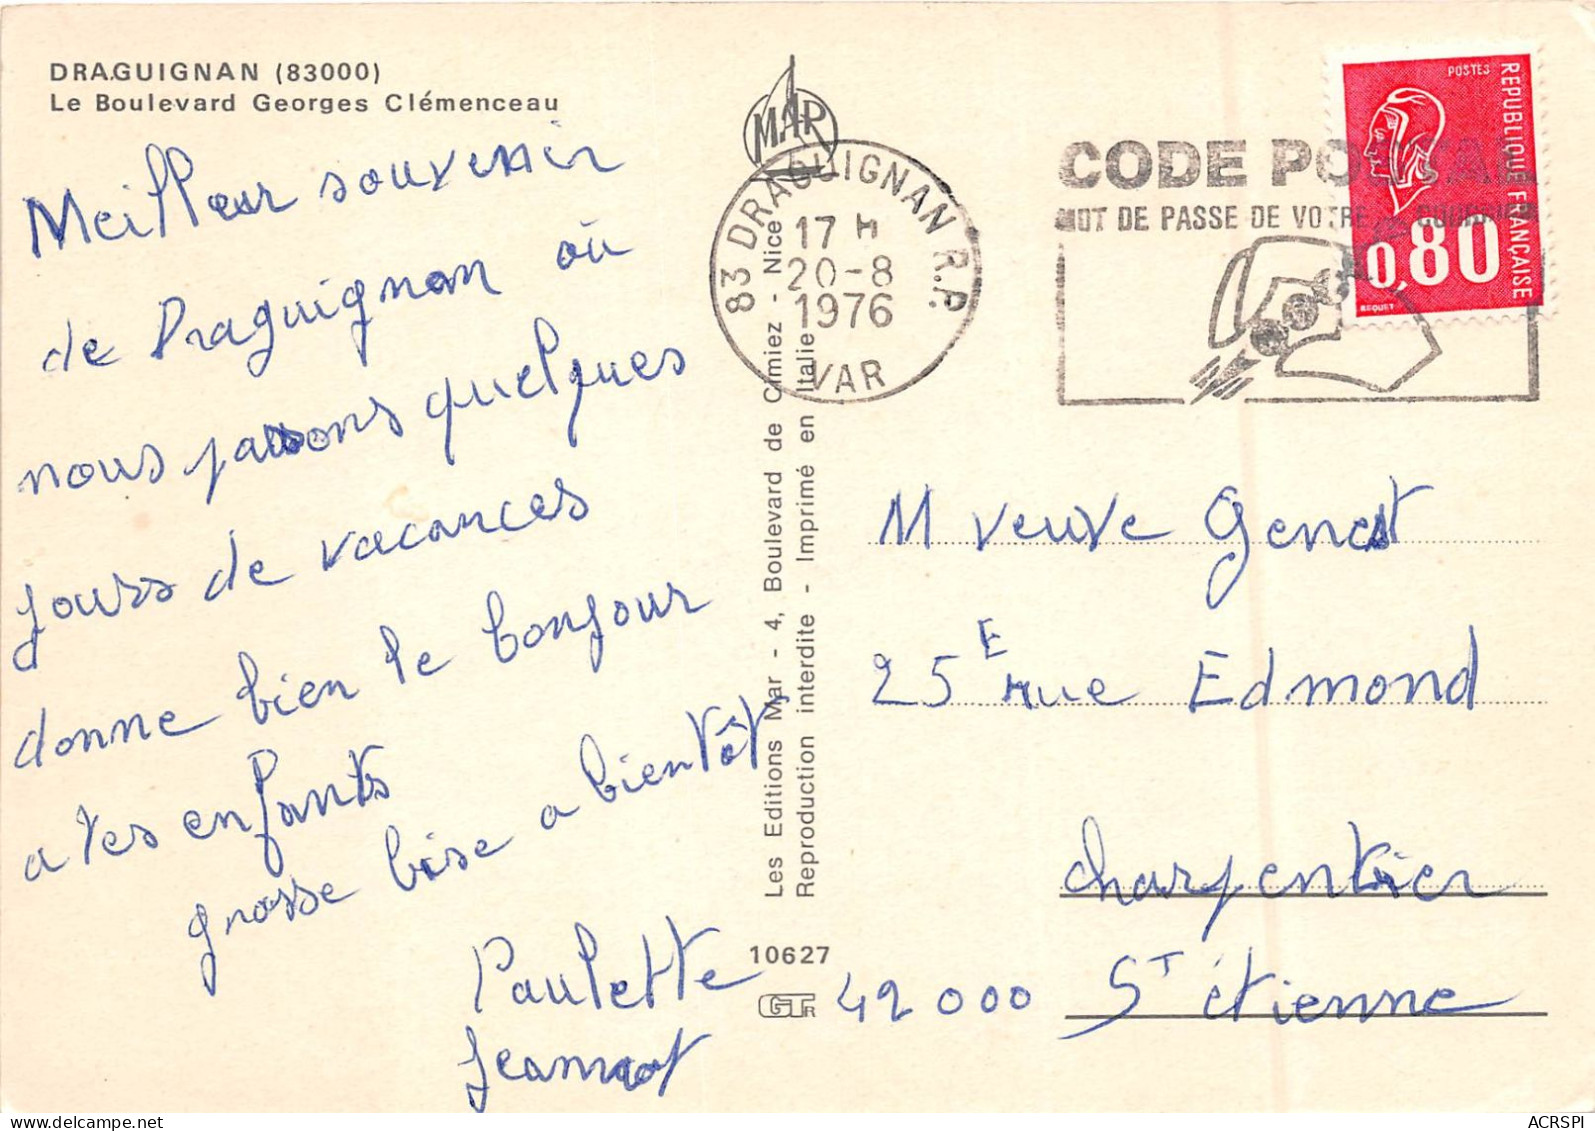 DRAGUIGNAN (83000)
Le Boulevard Georges Clémenceau
Meilleur souvenir
de Draguignan où
nous passons quelques
jours de vacances
donne bien le bonjour
a tes enfants
grosse bise a bientôt
Paulette
Jeannot
MAR
83 DRAGUIGNAN R.P.
17 H
20-8
1976
VAR
CODE POSTAL
MOT DE PASSE DE VOTRE COURRIER
POSTES
REPUBLIQUE FRANÇAISE
0,80
BEQUET
Les Editions Mar - 4, Boulevard de Cimiez - Nice
Reproduction interdite - Imprimé en Italie
M veuve Genest
25E rue Edmond
charpentier
42000 ST étienne
10627
GTR
ACRSPI